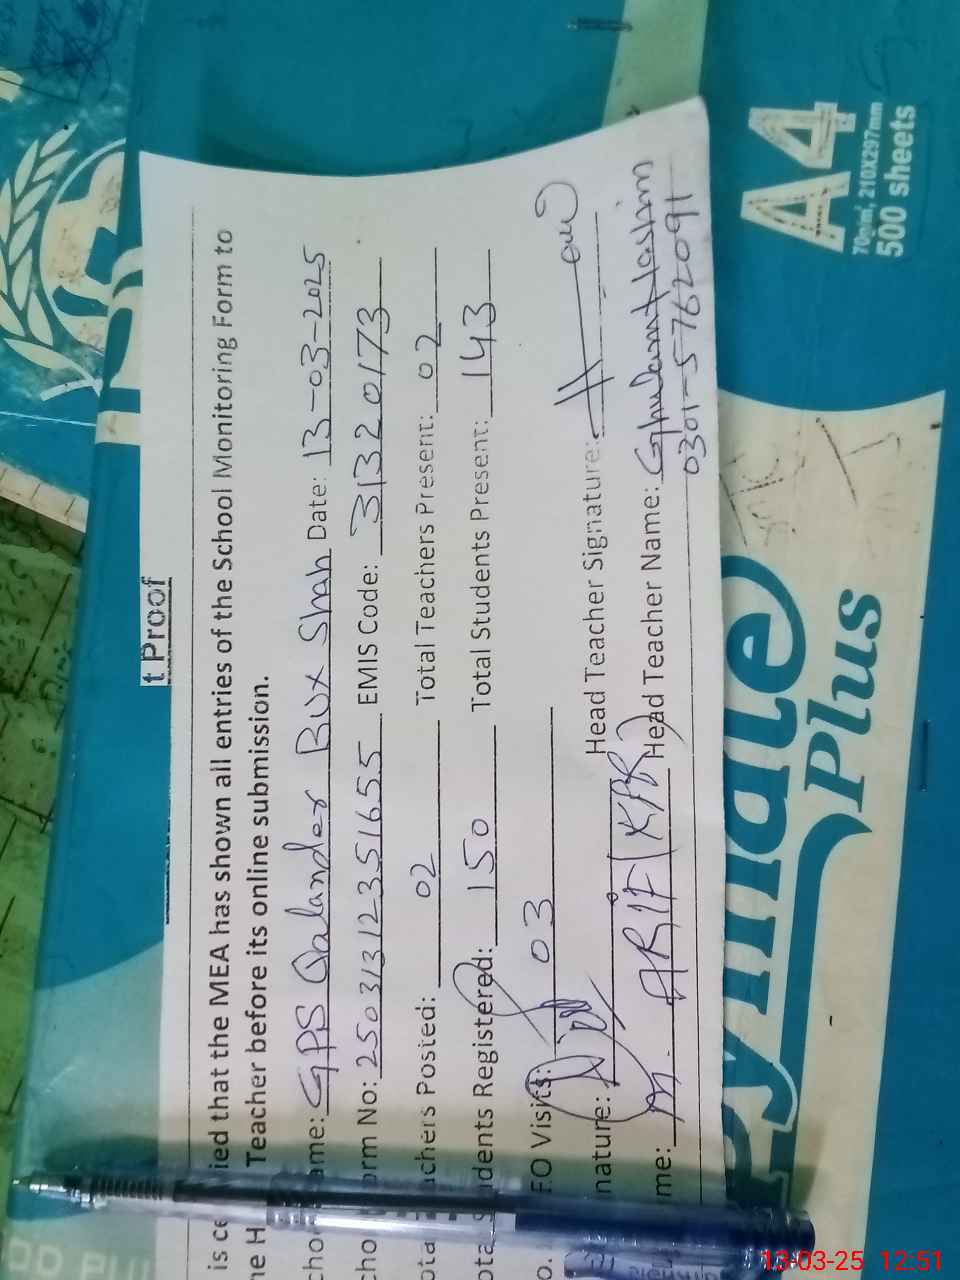 t Proof
is ce ied that the MEA has shown all entries of the School Monitoring Form to
he H Teacher before its online submission.
choo ame: GPS Qalander Bux Shah Date: 13-03-2025
cho orm No: 250313123551655 EMIS Code: 313320173
ota chers Posted: 02 Total Teachers Present: 02
ota dents Registered: 150 Total Students Present: 143
o. F.O Visits: 03
nature: Head Teacher Signature:
me: M. ARIF (KPR) Head Teacher Name: Ghulam Hashim
0301-5762091
A4
70gsm, 210X297mm
500 sheets
Plus
13-03-25 12:51